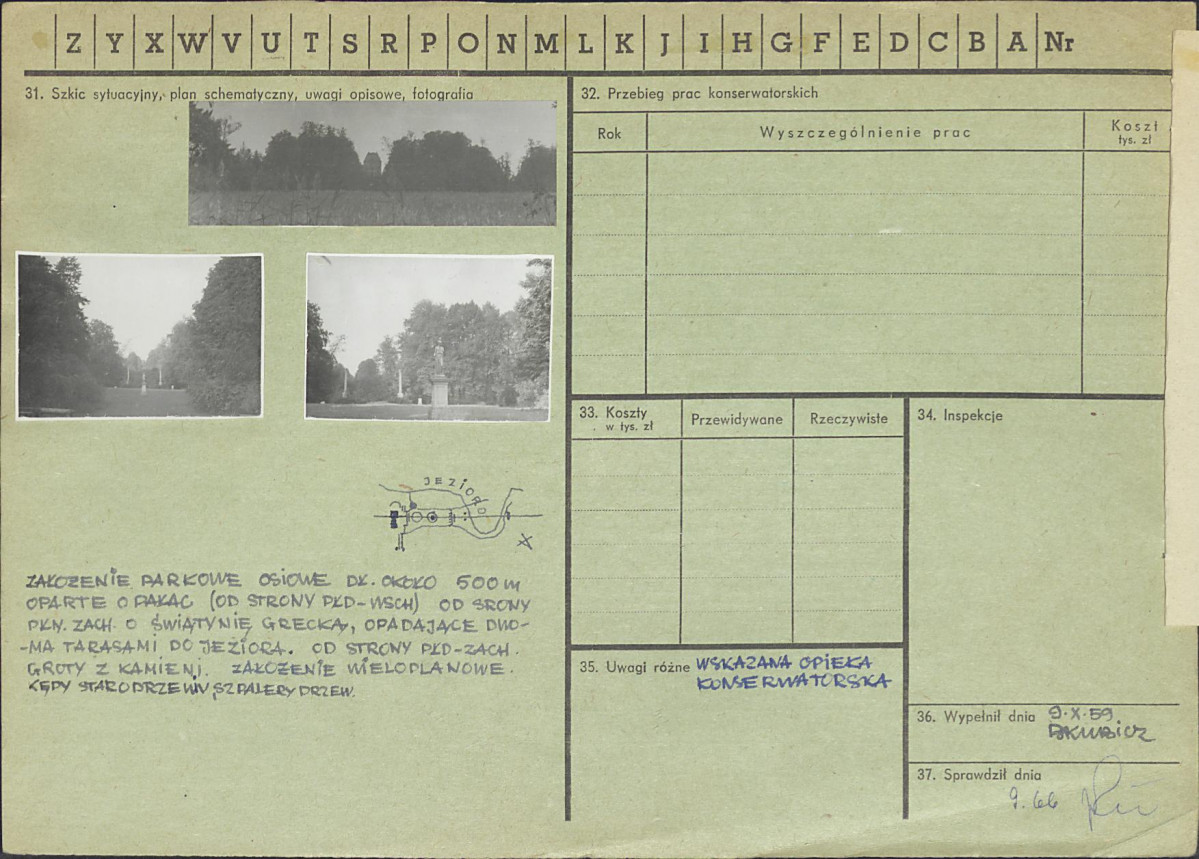 Z Y X W V U T S R P O N M L K J I H G F E D C B A Nr
31. Szkic sytuacyjny, plan schematyczny, uwagi opisowe, fotografia
JEZIORO
ZAŁOŻENIE PARKOWE OSIOWE DŁ. OKOŁO 500 m
OPARTE O PAŁAC (OD STRONY PŁD-WSCH) OD SRONY
PŁN. ZACH. O ŚWIĄTYNIĘ GRECKĄ, OPADAJĄCE DWO-
-MA TARASAMI DO JEZIORA. OD STRONY PŁD-ZACH.
GROTY Z KAMIENI. ZAŁOŻENIE WIELOPLANOWE.
KĘPY STARODRZEWIU, SZPALERY DRZEW.
32. Przebieg prac konserwatorskich
Rok
Wyszczególnienie prac
Koszt
tys. zł
33. Koszty
w tys. zł
Przewidywane
Rzeczywiste
34. Inspekcje
35. Uwagi różne WSKAZANA OPIEKA
KONSERWATORSKA
36. Wypełnił dnia 9.X.59
37. Sprawdził dnia
9.66